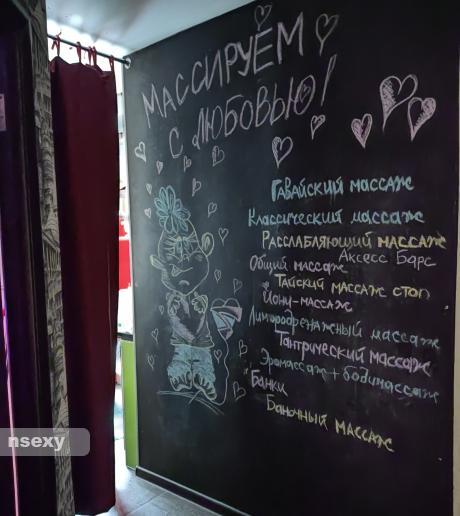 МАССИРУЕМ
С ЛЮБОВЬЮ!
Гавайский массаж
Классический массаж
Расслабляющий массаж
Аксесс Барс
Общий массаж
Тайский массаж стоп
Йони-массаж
Лимфодренажный массаж
Тантрический массаж
Эромассаж + бодимассаж
Банки
Баночный массаж
nsexy